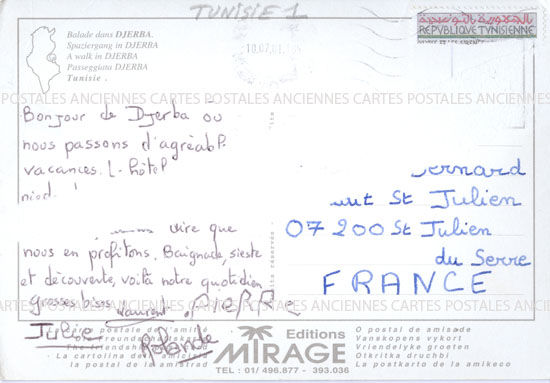 TUNISIE 1
Balade dans DJERBA.
Spaziergang in DJERBA
A walk in DJERBA
Passeggiata DJERBA
Tunisie.
الجمهورية التونسية
REPUBLIQUE TUNISIENNE
POSTALES ANCIENNES CARTES POSTALES ANCIENNES CARTES POSTALES ANCIENNES
Bonjour de Djerba où
nous passons d'agréabl
vacances. L'hôtel
dire que
nous en profitons. Baignade, sieste
et découverte, voilà notre quotidien
Grosses bises Laurent PIERRE
Julie Rolande
ernard
St Julien
07 200 St Julien
du Serre
FRANCE
CARTES POSTALES ANCIENNES CARTES POSTALES ANCIENNES CARTES
La cartolina de
la postal de la amistrad
Editions
MIRAGE
TEL : 01/ 496.877 - 393.036
O postal de amisade
Vanskopens vykort
Vriendelyke groeten
Otkritka druchbi
La postkarto de la amikeco